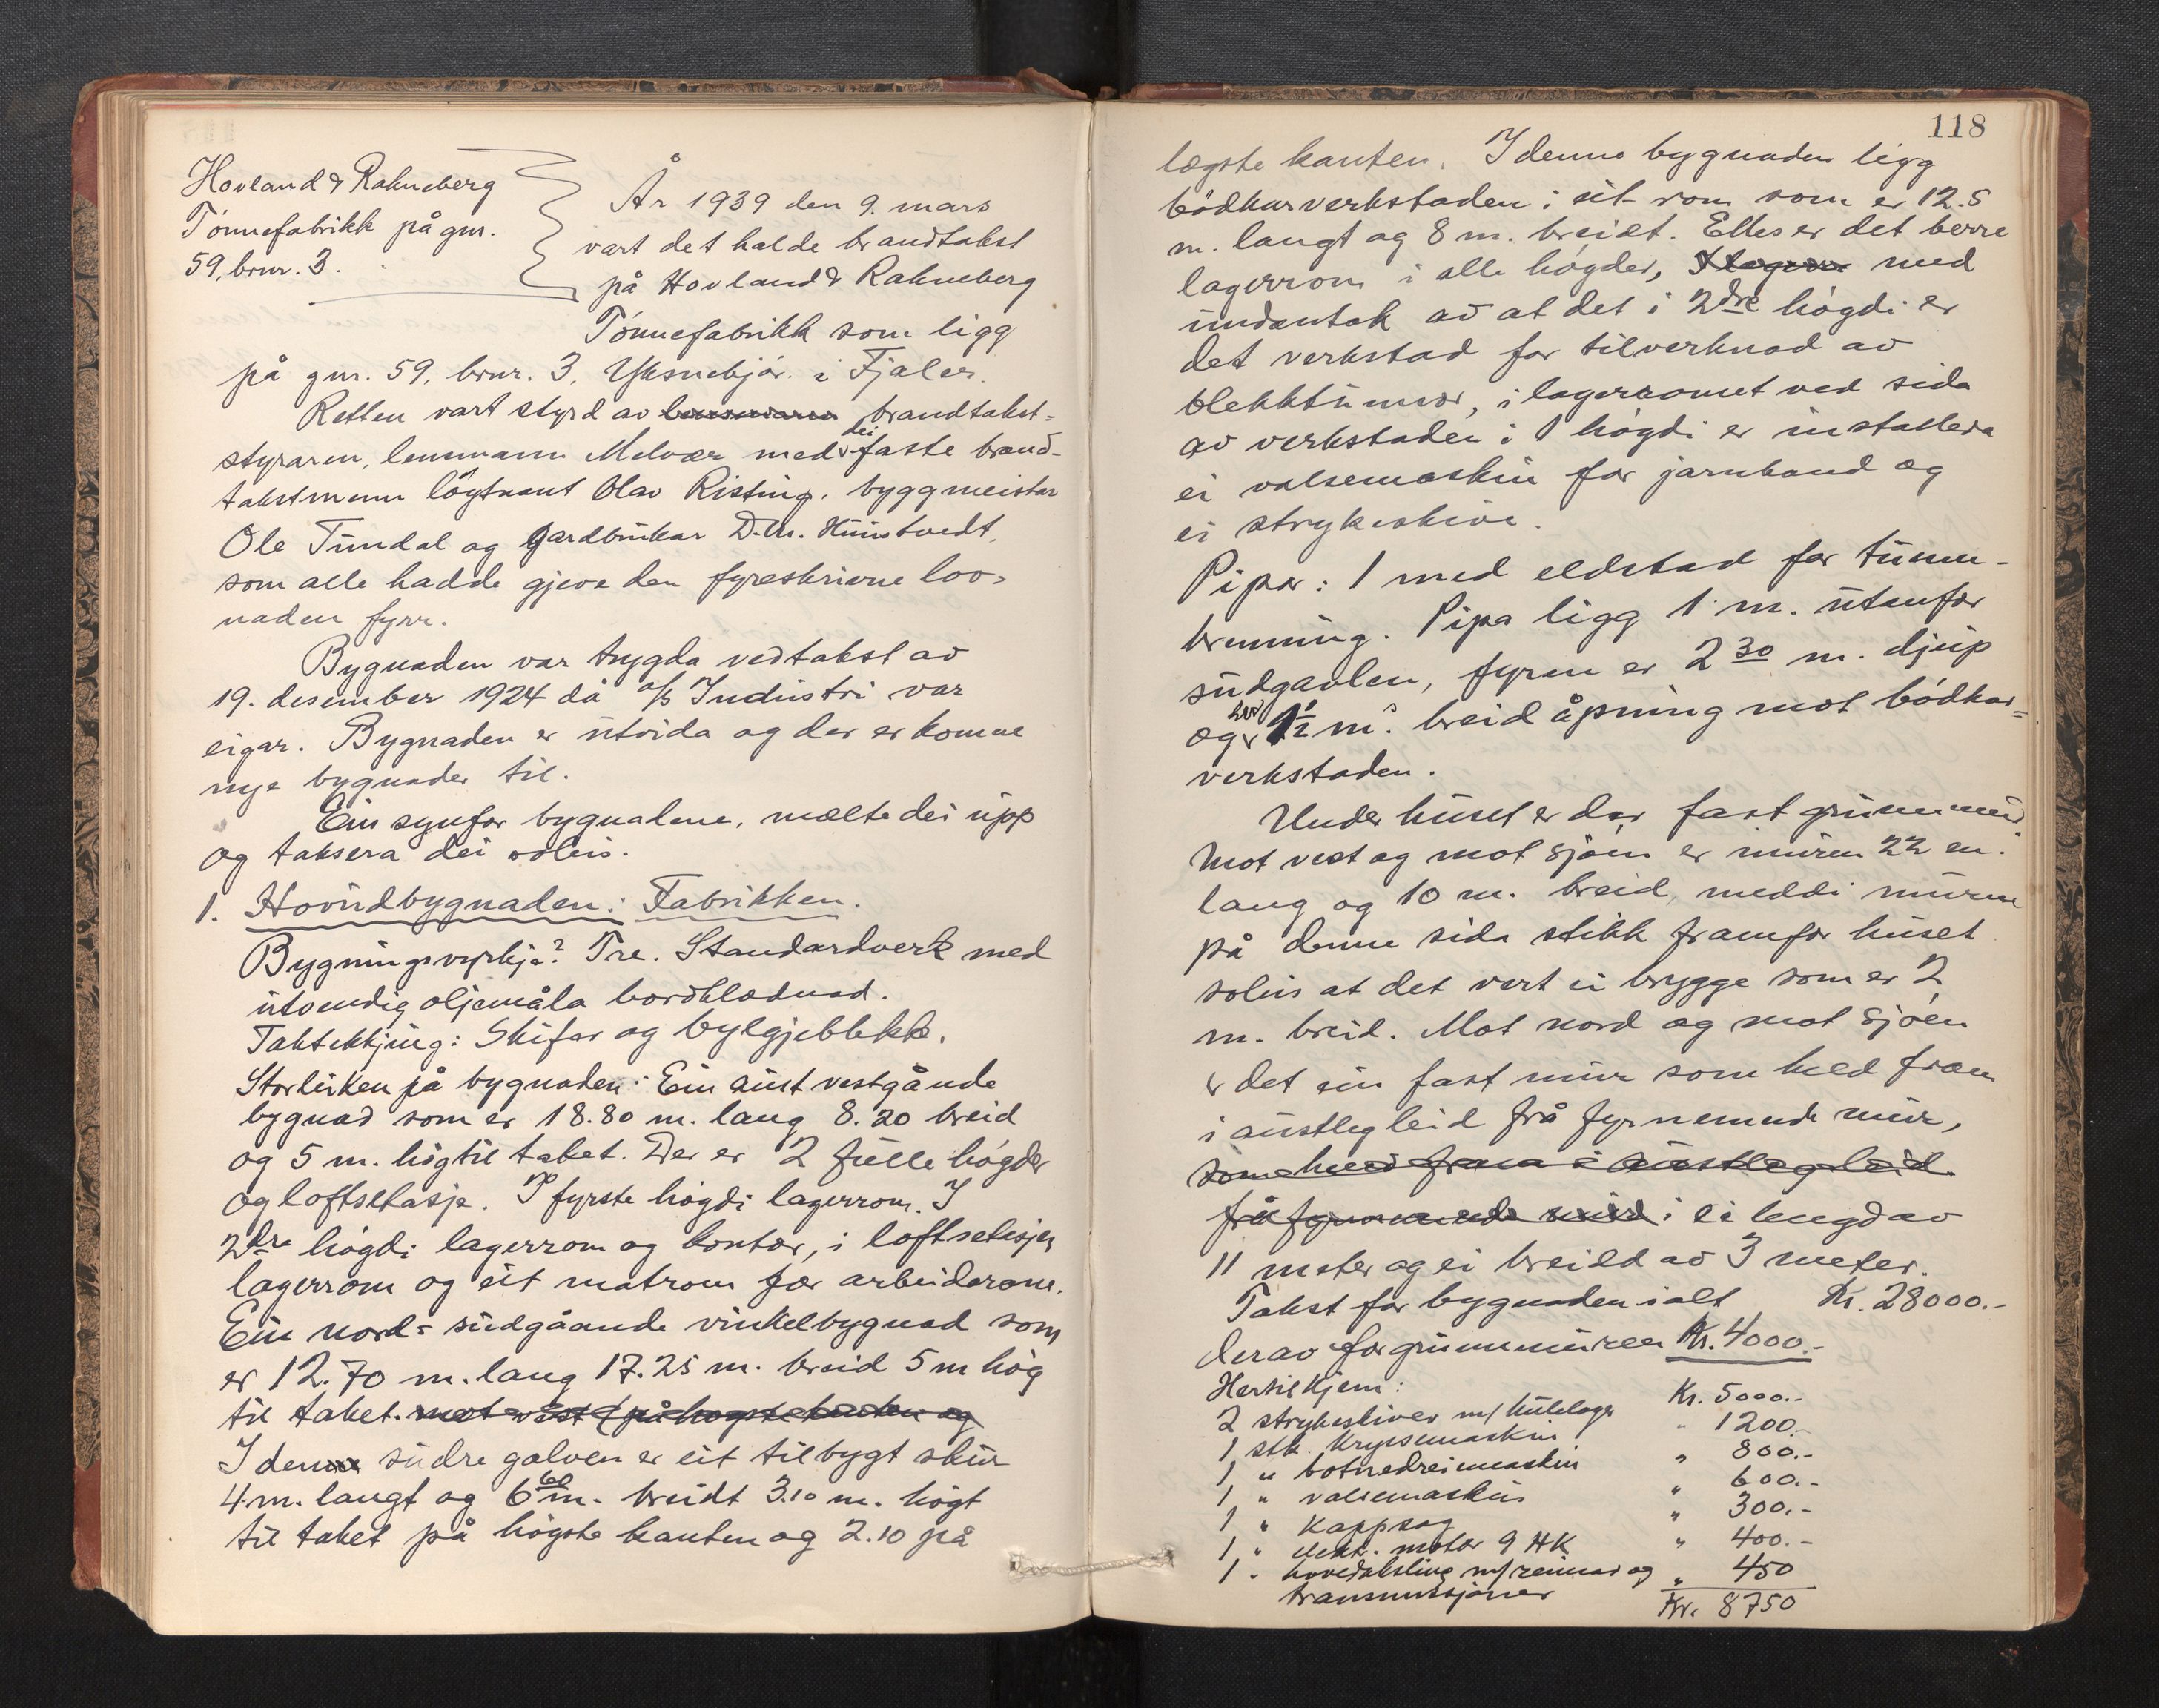 Hovland & Rakneberg
Tönnefabrikk på gnr.
59, brnr. 3.
År 1939 den 9. mars
vart det halde brandtakst
på Hovland & Rakneberg
Tönnefabrikk som ligg
på gnr. 59, brnr. 3, Yksnebjör i Fjaler.
Retten vart styrd av brandtakst-
styraren, lensmann Melvær med dei faste brand-
takstmenn löytnant Olav Risting, byggmeistar
Ole Tundal og gardbrukar D. M. Hunstvedt,
som alle hadde gjeve den fyreskrivne lov-
naden fyrr.
Bygnaden var trygda ved takst av
19. desember 1924 då a/s Industri var
eigar. Bygnaden er utvida og der er komne
nye bygnader til.
Ein synfor bygnadene, mælte dei upp
og taksera dei soleis.
1. Hovudbygnaden: Fabrikken.
Bygningsvyrkje? Tre. Standardverk med
utvendig oljemåla bordklædnad.
Taktekkjing: Skifer og bylgjeblekk.
Storleiken på bygnaden: Ein aust vestgåande
bygnad som er 18.80 m. lang 8.20 breid
og 5 m. hög til taket. Der er 2 fulle högder
og loftsetasje. I fyrste högdi lagerrom. I
2dre högdi lagerrom og kontor, i loftsetasjen
lagerrom og eit matrom for arbeidarane.
Ein nord- sudgåande vinkelbygnad som
er 12.70 m. lang 17.25 m. breid 5 m hög
til taket. mot vest (på högste kanten og
I den södre galven er eit tilbygt skur
4 m. langt og 6 60 m. breidt 3.10 m. högt
til taket på högste kanten og 2.10 på
118
lægste kanten. I denne bygnaden ligg
bödkarverkstaden i eit rom som er 12.5
m. langt og 8 m. breidt. Elles er det berre
lagerrom i alle högder, med
undantak av at det i 2dre högdi er
det verkstad for tilverknad av
blekktunnor, i lagerromet ved sida
av verkstaden i 1 högdi er installera
ei valsemaskin for jarnband og
ei strykeskive.
Piper: 1 med eldstad for tunne-
brenning. Pipa ligg 1 m. utanfor
sudgavlen, fyren er 2 30 m. djup
og 1½ m. breid åpning mot bödkar-
verkstaden.
Under huset er der fast grunnmur
Mot vest og mot sjöen er muren 22 m.
lang og 10 m. breid, med di muren
på denne sida stikk framfor huset
soleis at det vert ei brygge som er 2
m. breid. Mot nord og mot sjöen
er det ein fast mur som held fram
i austleg leid frå fyrnemnde mur,
som held fram i austleg leid
frå fyrnemnde mur i ei lengd av
11 meter og ei breidd av 3 meter.
Takst for bygnaden i alt Kr. 28000.-
derav for grunnmuren Kr. 4000.-
Hertil kjem:
2 strykeskiver m/ kulelager Kr. 5000.-
1 stk. krysemaskin " 1200.-
1 " botnedreiemaskin " 800.-
1 " valsemaskin " 600.-
1 " kappsag " 300.-
1 " elektr. motor 9 HK " 400.-
1 " hovedaksling m/ reimar og " 450
transmissjoner
Kr. 8750